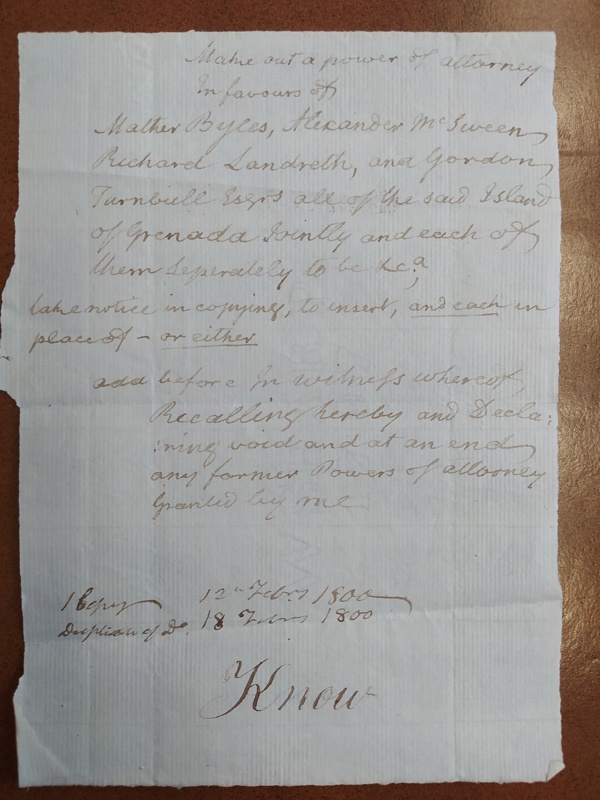 Make out a power of attorney
In favours of
Mather Byles, Alexander McSween
Richard Landreth, and Gordon
Turnbull Esqrs all of the said Island
of Grenada Jointly and each of
them Seperately to be &ca,
take notice in copying, to insert, and each in
place of - or either
add before In witness whereof,
Recalling hereby and Decla:
:ring void and at an end
any former Powers of attorney
Granted by me
1 Copy 12th Febry 1800
Duplicate of Do. 18 Febry 1800
Know